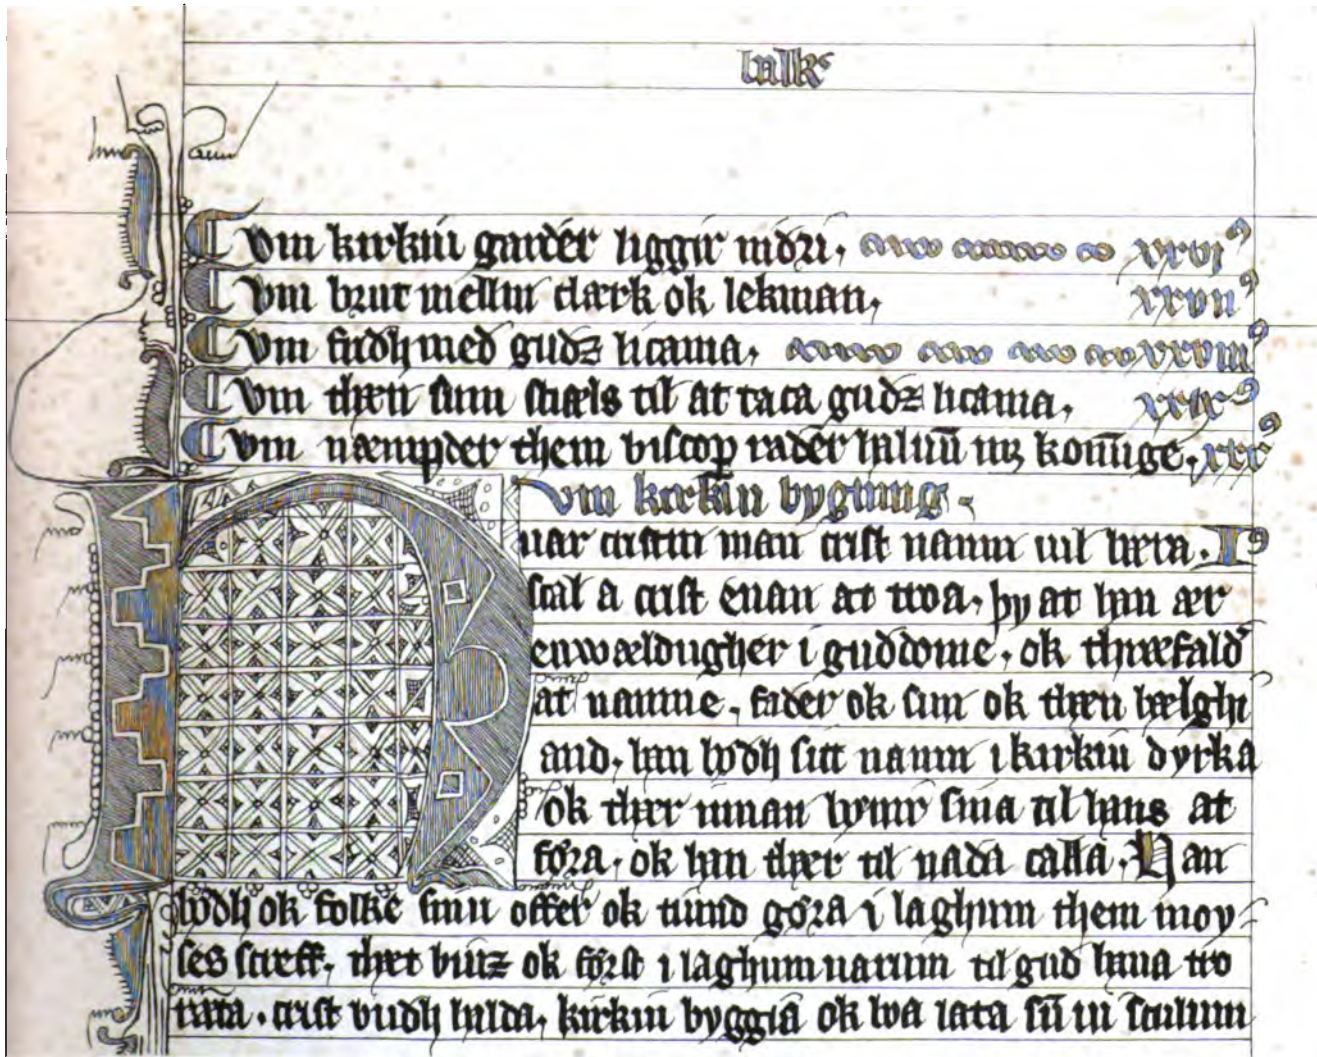 balk⁹
¶ vm kirkiu garder liggir nidri, xxvi⁹
¶ vm brut mellin clærk ok lekman, xxvii⁹
¶ vm færdh med gudz licama, xxviii⁹
¶ vm thæn sum stiæls til at taca gudz licama, xxix⁹
¶ vm næmpder them biscop rader haluū ꝫ konūge, xxx⁹
vm kirkiu bygning
Huar cristin man crist namn uil bæra. I⁹
scal a crist enan at troa, þy at han ær
enwældugher i guddome, ok thræfald
at namne, fader ok sun ok thæn hælghi
and, han bødh sitt namn i kirkiu dyrka
ok thær innan bønir sina til hans at
føra, ok han thær til nada calla. Han
bødh ok folke sinu offer ok tiund gøra i laghum them moy-
ses scrеff, thæt buiz ok først i laghum uarum til gud haua tro
rata. crist vudh halda, kirkiu byggia ok lata sū ui sculum